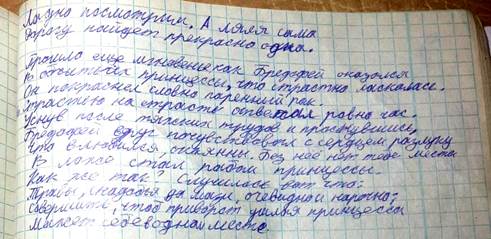 Ладно посмотрим. А ляля сама
дорогу найдет прекрасно одна.
Прошло еще мгновенье как Бредофей оказался
В объятьях принцессы, что страстно ласкалась.
Он покраснел словно паренный рак.
Страстью на страсть отвечал ровно час.
Уснув после тяжких трудов и проснувшись,
Бредофей вдруг почувствовал с сердцем разлуку
Что влюбился окаянны. Без нее нет тебе места
В ложе стал рабом принцессы.
Как же так? Случилась вот что:
Травы, снадобья да мази, очевидно нарочно;
Совершить, чтоб приворот принцессы
Может себе водной место.